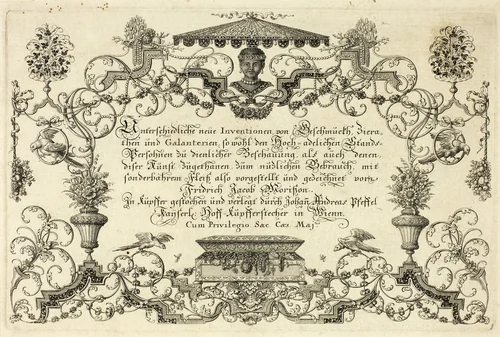 Unterschidliche neue Inventionen von Geschmuckh, Ziera,
then und Galanterien, so wohl den Hoch-adelichen Stands-
Persohnen zu dienlicher Beschauung, als auch denen
diser Kunst zugethanen zum nüdlichen Gebrauch, mit
sonderbahrem Fleiß also vorgestellt und gezeichnet von
Fridrich Jacob Morison.
In Kupffer gestochen und verlegt durch Johan Andreas Pfeffel
Kayserl: Hoff-Kupfferstecher in Wienn.
Cum Privilegio Sac Cæs Maj